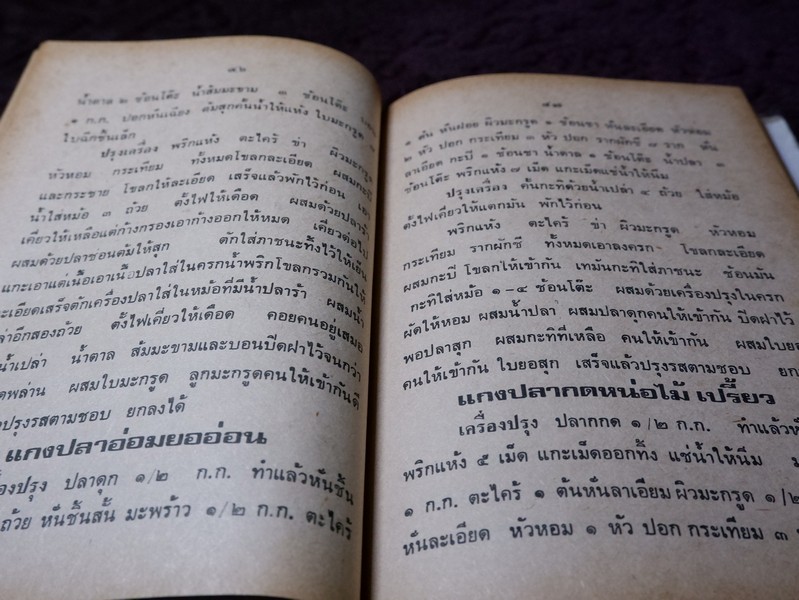 ๘๖
น้ำตาล ๒ ช้อนโต๊ะ น้ำส้มมะขาม ๓ ช้อนโต๊ะ
ก.ก. ปอกหั่นเฉียง ต้มสุกคั้นน้ำให้แห้ง ใบมะกรูด
ใบฉีกชิ้นเล็ก
ปรุงเครื่อง พริกแห้ง ตะไคร้ ข่า ผิวมะกรูด
หัวหอม กระเทียม ทั้งหมดโขลกละเอียด ผสมกะปิ
และกระชาย โขลกให้ละเอียด เสร็จแล้วพักไว้ก่อน เอา
น้ำใส่หม้อ ๓ ถ้วย ตั้งไฟให้เดือด ผสมด้วยปลาร้า
เคี่ยวให้เหลือแต่ก้างกรองเอาก้างออกให้หมด เคี่ยวต่อไป
ผสมด้วยปลาช่อนต้มให้สุก ตักใส่ภาชนะทิ้งไว้ให้เย็น
แกะเอาแต่เนื้อเอาเนื้อปลาใส่ในครกน้ำพริกโขลกรวมกันให้
ะเอียดเสร็จตักเครื่องปลาใส่ในหม้อที่มีน้ำปลาร้า ผสมน้ำ
ล่าอีกสองถ้วย ตั้งไฟเคี่ยวให้เดือด คอยคนอยู่เสมอ
น้ำเปล่า น้ำตาล ส้มมะขามและบอนปิดฝาไว้จนกว่า
ดพล่าน ผสมใบมะกรูด ลูกมะกรูดคนให้เข้ากันดี
ปรุงรสตามชอบ ยกลงได้
แกงปลาอ่อมยออ่อน
องปรุง ปลาดุก ๑/๒ ก.ก. ทำแล้วหั่นชิ้น
ถ้วย หั่นชิ้นสั้น มะพร้าว ๑/๒ ก.ก. ตะไคร้
๘๗
๑ ต้น หั่นฝอย ผิวมะกรูด ๑ ช้อนชา หั่นละเอียด หัวหอม
๒ หัว ปอก กระเทียม ๓ หัว ปอก รากผักชี ๗ ราก หั่น
ละเอียด กะปิ ๑ ช้อนชา น้ำตาล ๑ ช้อนโต๊ะ น้ำปลา ๓
ช้อนโต๊ะ พริกแห้ง ๗ เม็ด แกะเม็ดแช่น้ำให้นิ่ม
ปรุงเครื่อง คั้นกะทิด้วยน้ำเปล่า ๔ ถ้วย ใส่หม้อ
ตั้งไฟเคี่ยวให้แตกมัน พักไว้ก่อน
พริกแห้ง ตะไคร้ ข่า ผิวมะกรูด หัวหอม
กระเทียม รากผักชี ทั้งหมดเอาลงครก โขลกละเอียด
ผสมกะปิ โขลกให้เข้ากัน เทมันกะทิใส่ภาชนะ ช้อนมัน
กะทิใส่หม้อ ๑-๔ ช้อนโต๊ะ ผสมด้วยเครื่องปรุงในครก
ผัดให้หอม ผสมน้ำปลา ผสมปลาดุกคนให้เข้ากัน ปิดฝาไว้
พอปลาสุก ผสมกะทิที่เหลือ คนให้เข้ากัน ผสมใบยอ
คนให้เข้ากัน ใบยอสุก เสร็จแล้วปรุงรสตามชอบ
แกงปลากดหน่อไม้ เปรี้ยว
เครื่องปรุง ปลากกด ๑/๒ ก.ก. ทำแล้วหั่
พริกแห้ง ๕ เม็ด แกะเม็ดออกทิ้ง แช่น้ำให้นิ่ม
๑ ก.ก. ตะไคร้ ๑ ต้นหั่นลาเอียม ผิวมะกรูด ๑/๒
หั่นละเอียด หัวหอม ๑ หัว ปอก กระเทียม ๓